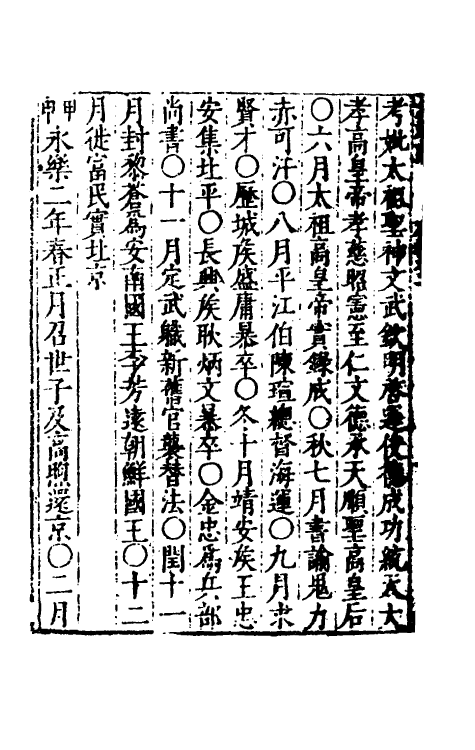 考妣太祖聖神文武欽明啓運俊德成功統天大
孝高皇帝孝慈昭憲至仁文德承天順聖高皇后
○六月太祖高皇帝實錄成○秋七月書諭鬼力
赤可汗○八月平江伯陳瑄總督海運○九月求
賢才○歷城侯盛庸暴卒○冬十月靖安侯王忠
安集北平○長興侯耿炳文暴卒○金忠爲兵部
尚書○十一月定武職新舊官襲替法○閏十一
月封黎蒼爲安南國王李芳遠朝鮮國王○十二
月徙富民實北京
甲申永樂二年春正月召世子及高煦還京○二月